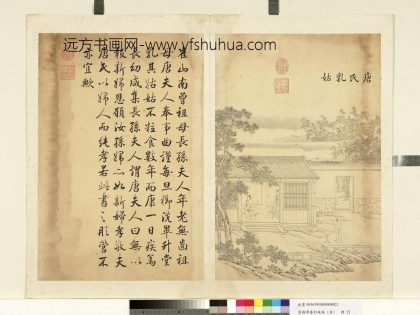 远方书画网-www.yfshuhua.com
唐氏乳姑
崔山南曾祖母長孫夫人年老無齒祖
母唐夫人奉事曲謹每旦櫛洗畢升堂
乳其姑姑不粒食數年而康一日疾篤
長幼咸集長孫夫人謂唐夫人曰無以
報新婦恩願汝孫婦亦如新婦孝敬夫
唐氏以婦人而純孝若此書之彤管不
亦宜歟